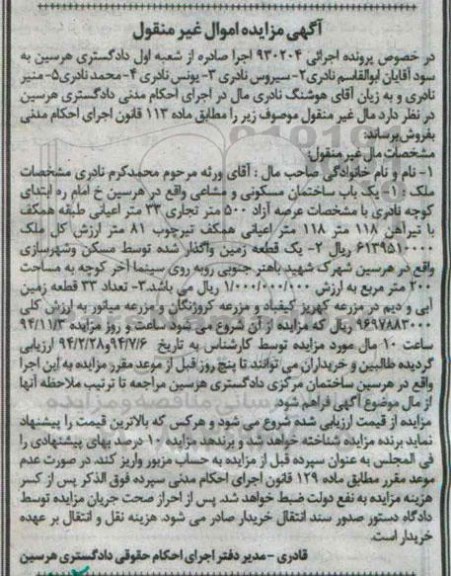 آگهی مزایده اموال غیر منقول
در خصوص پرونده اجرائی ۹۳۰۲۰۴ اجرا صادره از شعبه اول دادگستری هرسین به
سود آقایان ابوالقاسم نادری۲- سیروس نادری ۳- یونس نادری ۴- محمد نادری۵- منیر
نادری و به زیان آقای هوشنگ نادری مال در اجرای احکام مدنی دادگستری هرسین
در نظر دارد مال غیر منقول موصوف زیر را مطابق ماده ۱۱۳ قانون اجرای احکام مدنی
بفروش برساند:
مشخصات مال غیر منقول:
۱- نام و نام خانوادگی صاحب مال : آقای ورثه مرحوم محمدکرم نادری مشخصات
ملک : ۱- یک باب ساختمان مسکونی و مشاعی واقع در هرسین خ امام ره ابتدای
کوچه نادری با مشخصات عرصه آزاد ۵۰۰ متر تجاری ۳۳ متر اعیانی طبقه همکف
با تیرآهن ۱۱۸ متر ۱۱۸ متر اعیانی همکف تیرچوب ۸۱ متر ارزش کل ملک
۶۱۳۹۵۱۰۰۰۰ ریال ۲- یک قطعه زمین واگذار شده توسط مسکن وشهرسازی
واقع در هرسین شهرک شهید باهنر جنوبی روبه روی سینما آخر کوچه به مساحت
۲۰۰ متر مربع به ارزش ۱/۰۰۰/۰۰۰/۰۰۰ ریال می باشد.۳- تعداد ۳۳ قطعه زمین
آبی و دیم در مزرعه کهریز کیقباد و مزرعه کروژنگان و مزرعه میانور به ارزش کلی
۹۶۹۷۸۸۳۰۰۰ ریال که مزایده از آن شروع می شود ساعت و روز مزایده ۹۴/۱۱/۳
ساعت ۱۰ مال مورد مزایده توسط کارشناس به تاریخ ۹۴/۷/۶و۹۴/۲/۲۸ ارزیابی
گردیده طالبین و خریداران می توانند تا پنج روز قبل از موعد مقرر مزایده به این اجرا
واقع در هرسین ساختمان مرکزی دادگستری هرسین مراجعه تا ترتیب ملاحظه آنها
از مال موضوع آگهی فراهم شود.
مزایده از قیمت ارزیابی شده شروع می شود و هرکس که بالاترین قیمت را پیشنهاد
نماید برنده مزایده شناخته خواهد شد و برندهد مزایده ۱۰ درصد بهای پیشنهادی را
فی المجلس به عنوان سپرده قبل از مزایده به حساب مزبور واریز کند. در صورت عدم
موعد مقرر مطابق ماده ۱۲۹ قانون اجرای احکام مدنی سپرده فوق الذکر پس از کسر
هزینه مزایده به نفع دولت ضبط خواهد شد. پس از احراز صحت جریان مزایده توسط
دادگاه دستور صدور سند انتقال خریدار صادر می شود. هزینه نقل و انتقال بر عهده
خریدار است.
قادری - مدیر دفتر اجرای احکام حقوقی دادگستری هرسین